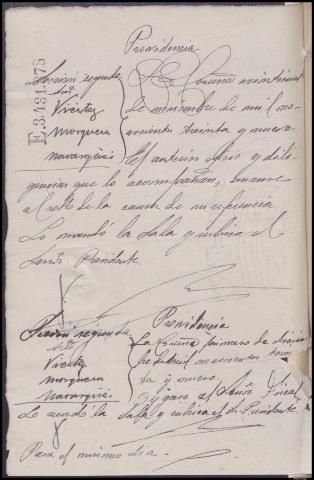 Providencia
E.3.431.875
Sección segunda
Sres
Vieitez
Morquera
Navarguis
La Coruña veintinueve
de noviembre de mil no-
vecientos treinta y nueve
El anterior oficio y dili-
gencias que lo acompañan, únanse
al rollo de la causa de su referencia
Lo mandó la Sala y rubrica el
Señor Presidente
Providencia
Sección segunda
Sres
Vieitez
Morquera
Navarguis
La Coruña primero de diciem
bre de mil novecientos trein
ta y nueve
Oygase al Señor Fiscal
Lo acordó la Sala y rubrica el Sr Presidente
Para el mismo día.